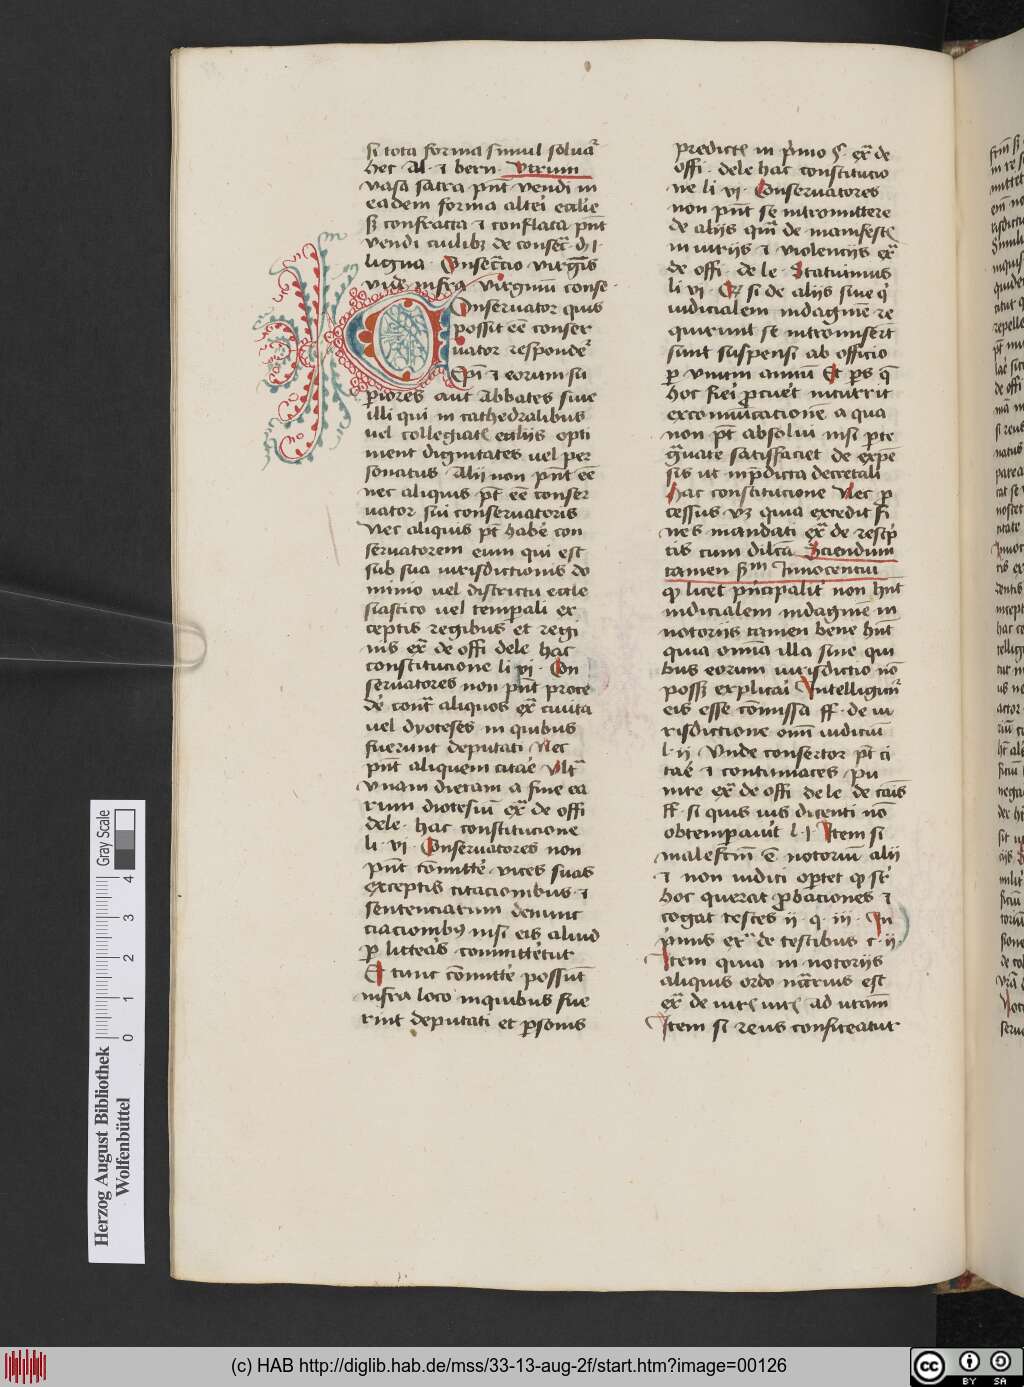 si tota forma simul soluat᷑
hec Al· ⁊ bern· Vtrum
vasa sacra pn̄t vendi in
eadem forma alteri eccl̄ie
sꝫ confracta ⁊ conflata pn̄t
vendi ciuilibꝫ de consec᷑ di· i·
ligna· Consec᷑cio virgīs
vide infra virginū conse·
Conseruator quis
possit eē conser
uator respondet᷑
Ep̄i ⁊ eorum su
p̄iores aut Abbates siue
illi qui in cathedralibus
uel collegiat᷑ eccl̄iis opti
nient dignitates uel per
sonatus Alii non pn̄t eē
nec aliquis pt̄ eē conser
uator sui conseruatoris
Nec aliquis pt̄ habē con
seruatorem eum qui est
sub sua iurisdictionis do
minio uel districtu eccle
siastico uel temporali ex
ceptis regibus et regi
nis ex᷑ de offi dele hac
constitucione li vi· Con
seruatores non pn̄t proce
de᷑ cont᷑ aliquos ex᷑ ciuita
uel dyoceses in quibus
fuerunt deputati Nec
pn̄t aliquem citare Vlt᷑
vnam dietam a fine ea
rum diocesiū ex᷑ de offi
dele· hac constitucione
li· vi· Conseruatores non
pn̄t cōmitte᷑ vices suas
exceptis citacionibus ⁊
sentenciarum denunc
ciacionibꝫ nisi eis aliud
ꝑ litteras committetur
Et tunc cōmitte᷑ possūt
infra loco inquibus fue
rint deputati et ꝑsonis
predict᷑ in p̄mo § ex᷑ de
offi· dele hac constitucio
ne li vi· Conseruatores
non pn̄t se intromittere
de aliis qm̄ de manifest᷑
iniuriis ⁊ violenciis ex᷑
de offi· de le· Statuimus
li vi· Qꝫ si de aliis siue q᷑
iudicialem indaginē re
quirunt se intromiserīt
sunt suspensi ab officio
ꝑ vnum annū Et ꝑs q̄
hoc fieri ꝓcuret incurrit
excommunicationē a qua
non pt̄ absolui nisi parte
g᷑uate satisfaciet de expē
sis ut in p̄dicta decretali
hac constitucione Nec ꝓ
cessus vꝫ quia excedit fi
nes mandati ex᷑ de rescrip
tis cum dilc̄a Sciendum
tamen s᷑m Innocencium
qꝫ licet p̄ncipaliter non hn̄t
iudicialem indaginē in
notoriis tamen bene hn̄t
quia omīa illa sine qui
bus eorum iurisdictio nō
possꝫ explicari Intelligun᷑
eis esse cōmissa ff· de iu
risdictione omī iudicū
l· ii Vnde consertor pt̄ ci
tare ⁊ contumaces pu
nire ex᷑ de offi dele de caūs
ff· si quis ius dicenti nō
obtemperauit l· i· Item si
malefcm̄ ē notoriū alii
⁊ non iudici oportet qꝫ sup̄
hoc querat ꝓbaciones ⁊
cogat testes ii· q· iii· In
p̄mis et de testibus c· ii·
Item quia in notoriis
aliquis ordo ncr̄ius est
ex᷑ de iure iur᷑ ad ucam̄
Item si reus confiteatur
Herzog August Bibliothek
Wolfenbüttel
0 1 2 3 4
Gray Scale
(c) HAB http://diglib.hab.de/mss/33-13-aug-2f/start.htm?image=00126
cc BY SA